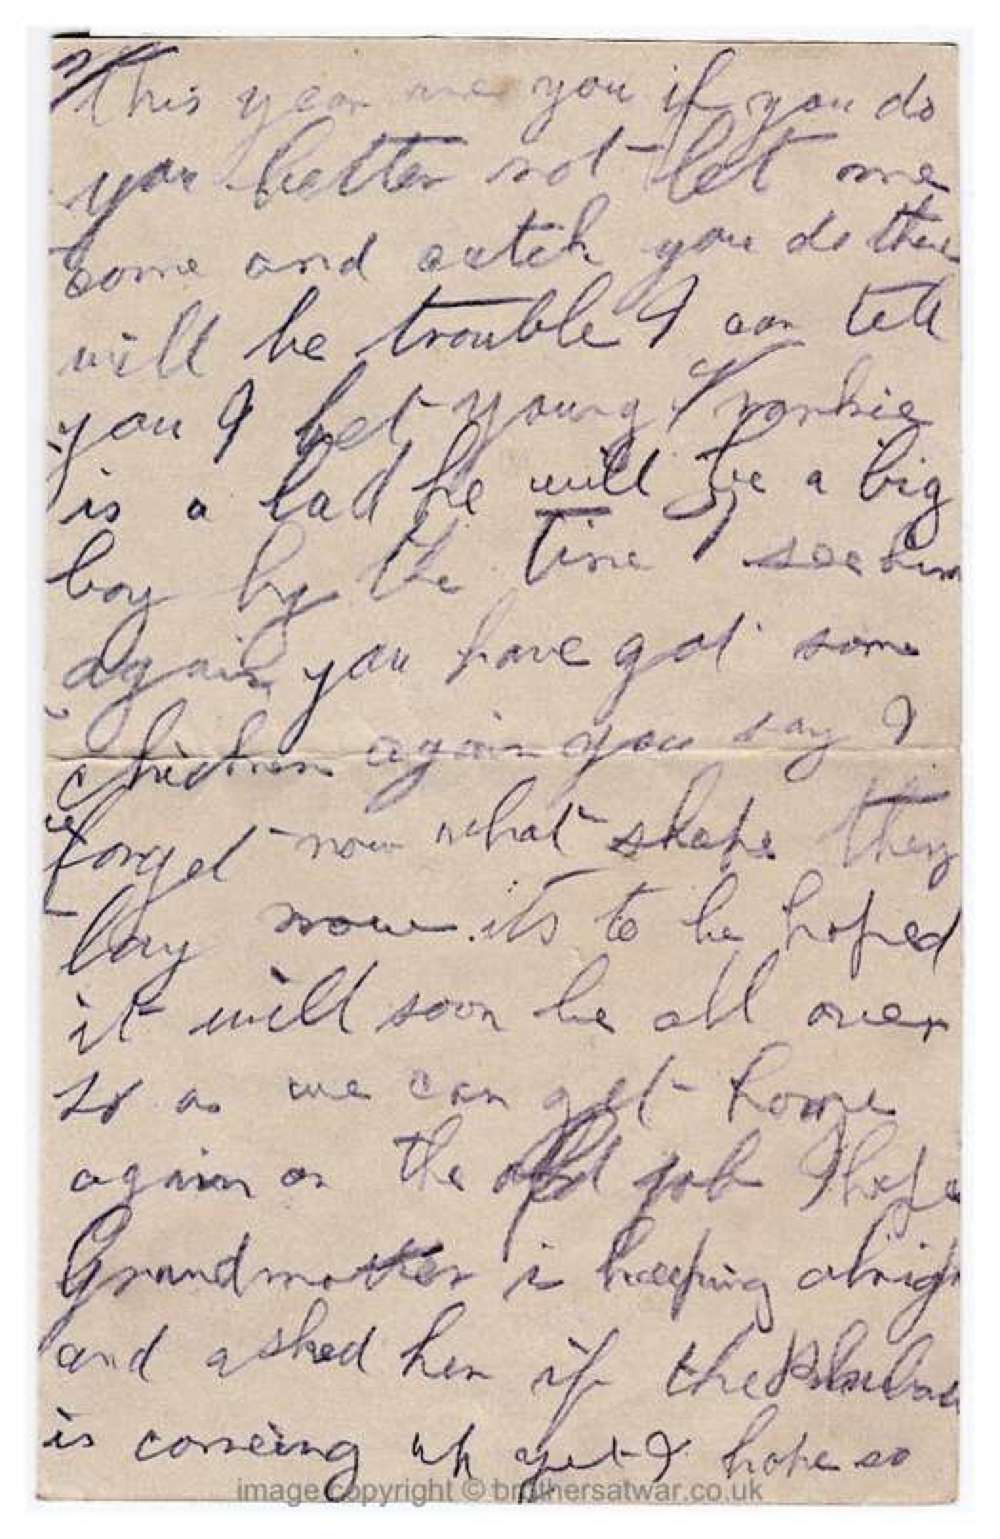 this year are you if you do
you better not let me
come and catch you do there
will be trouble I can tell
you I bet young Frankie
is a lad he will be a big
boy by the time I see him
again you have got some
chickens again you say I
forget now what shape they
lay now. its to be hoped
it will soon be all over
so as we can get home
again on the old job I hope
Grandmother is keeping alright
and asked her if the
is comeing up yet I hope so
image copyright © brothersatwar.co.uk